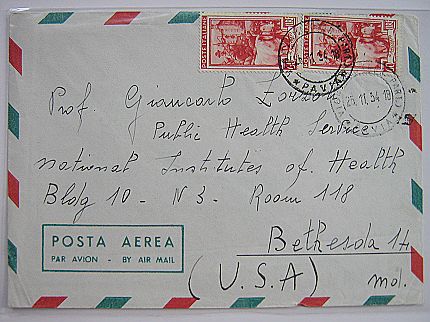 PAVIA
26.11.54.18
Prof. Giancarlo
Public Health Service
National Institutes of Health
Bldg 10 - N 3. Room 118
Bethesda 14
(U.S.A) Md.
POSTA AEREA
PAR AVION - BY AIR MAIL